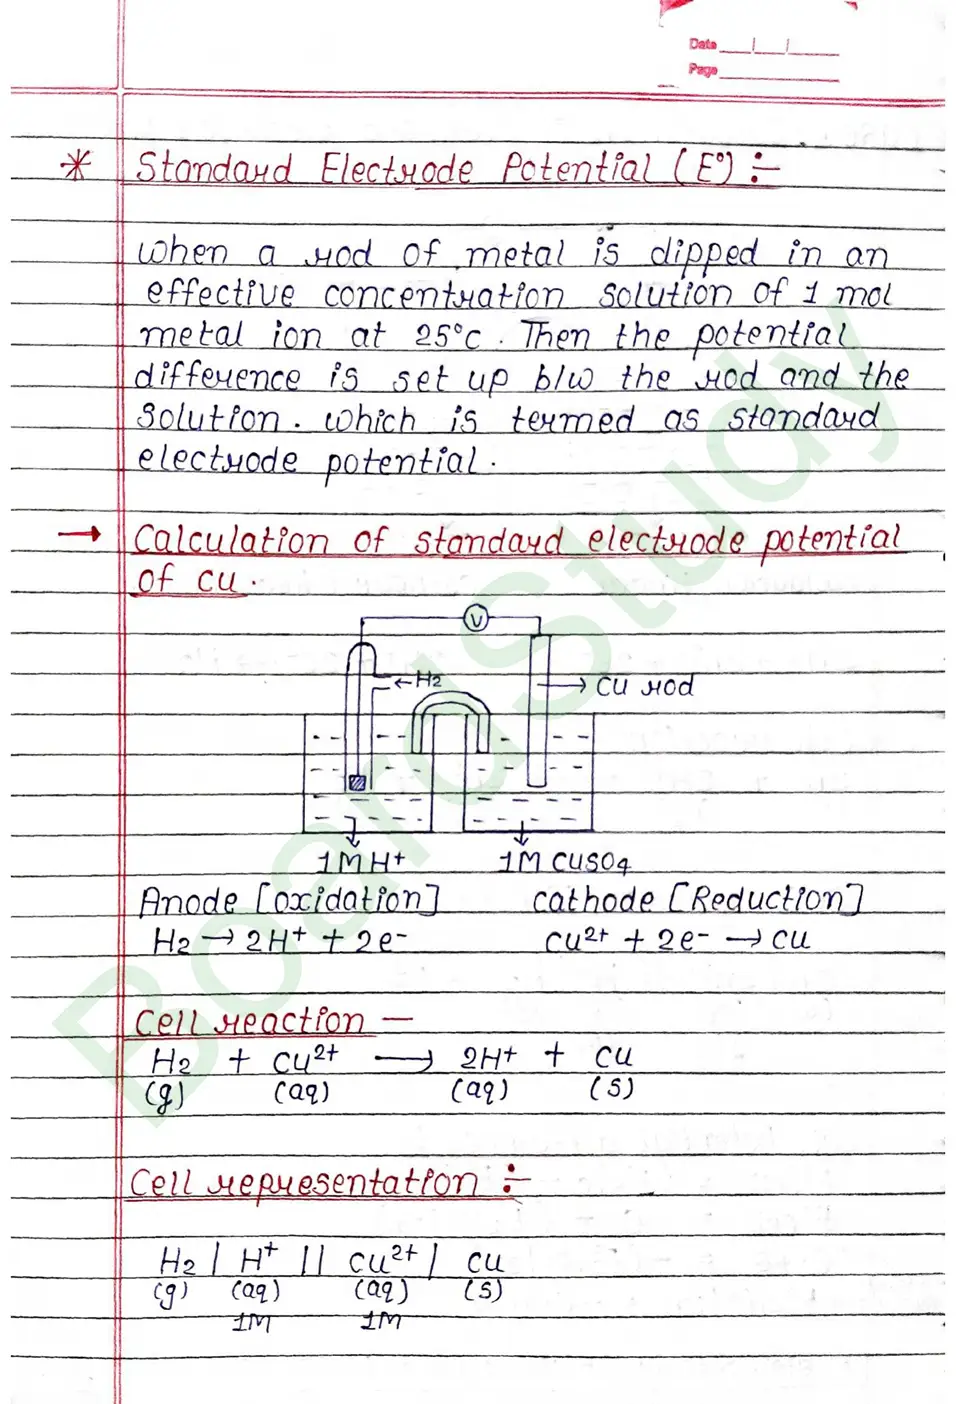 Date
Page
* Standard Electrode Potential (E°) :-
When a rod of metal is dipped in an
effective concentration solution of 1 mol
metal ion at 25°c. Then the potential
difference is set up b/w the rod and the
solution. Which is termed as standard
electrode potential.
→ Calculation of standard electrode potential
of cu.
V
←H2
→ cu rod
1M H+ 1M CUSO4
Anode [oxidation] cathode [Reduction]
H2 → 2H+ + 2e- cu2+ + 2e- → cu
Cell reaction —
H2 + cu2+ → 2H+ + cu
(g) (aq) (aq) (s)
Cell representation :-
H2 | H+ || cu2+ | cu
(g) (aq) (aq) (s)
1M 1M
BoardStudy